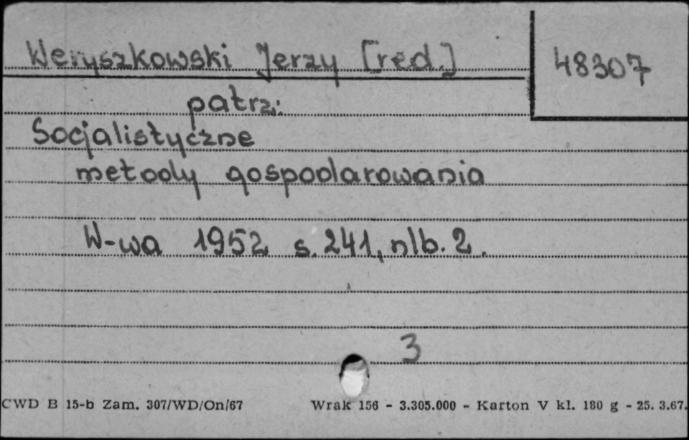 Weryszkowski Jerzy [red.]
48307
patrz:
Socjalistyczne
metody gospodarowania
W-wa 1952 s. 241, nlb. 2.
3
CWD B 15-b Zam. 307/WD/On/67 Wrak 156 - 3.305.000 - Karton V kl. 180 g - 25. 3.67.